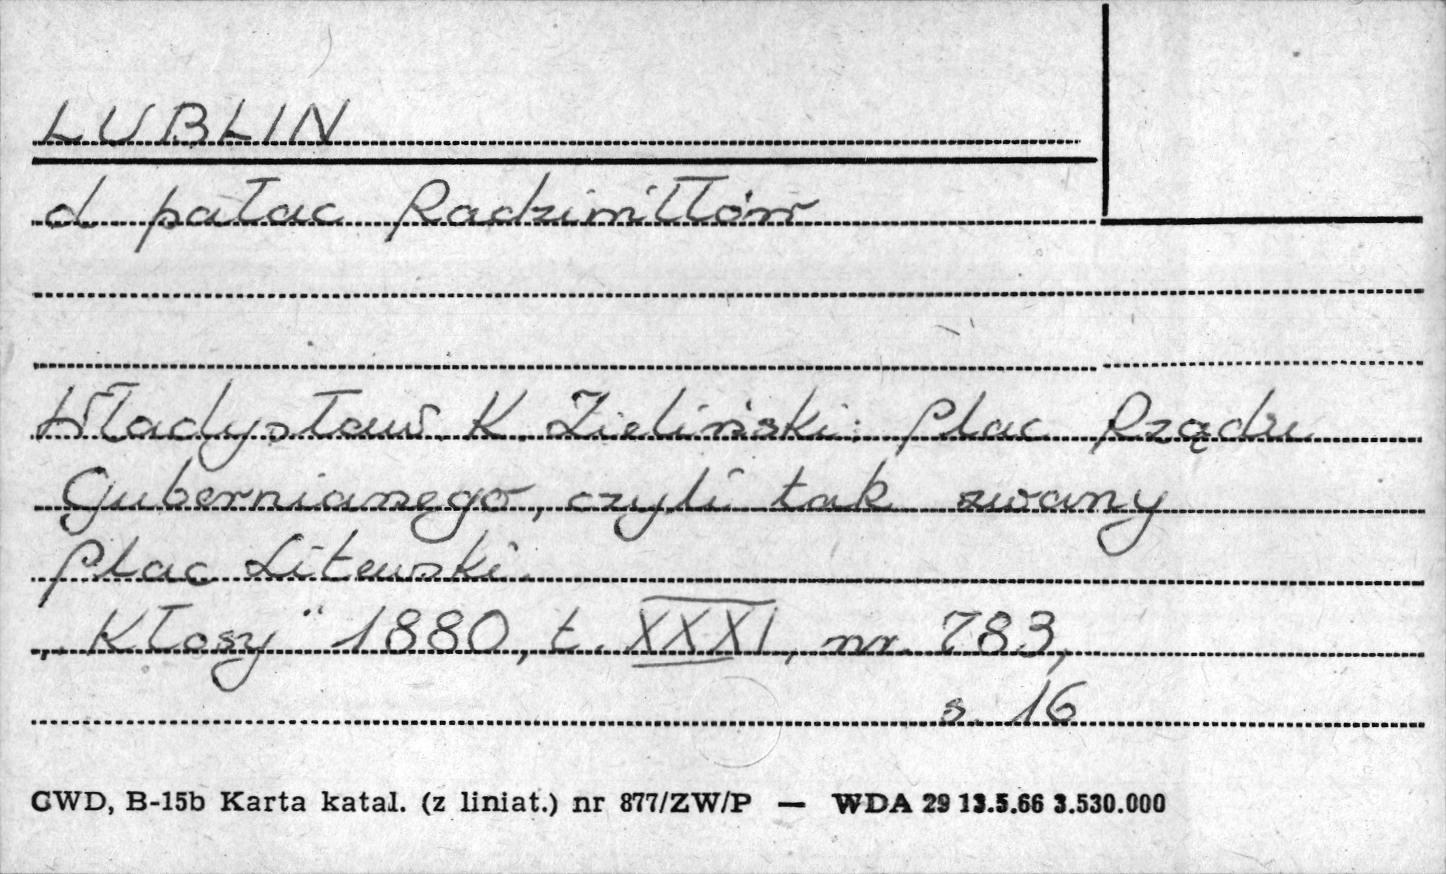 LUBLIN
d pałac Radziwiłłów
Władysław K. Zieliński: Plac Rządu
Gubernianego, czyli tak zwany
Plac Litewski.
„Kłosy" 1880, t. XXXI, nr. 783,
s. 16
CWD, B-15b Karta katal. (z liniat.) nr 877/ZW/P — WDA 29 13.5.66 3.530.000